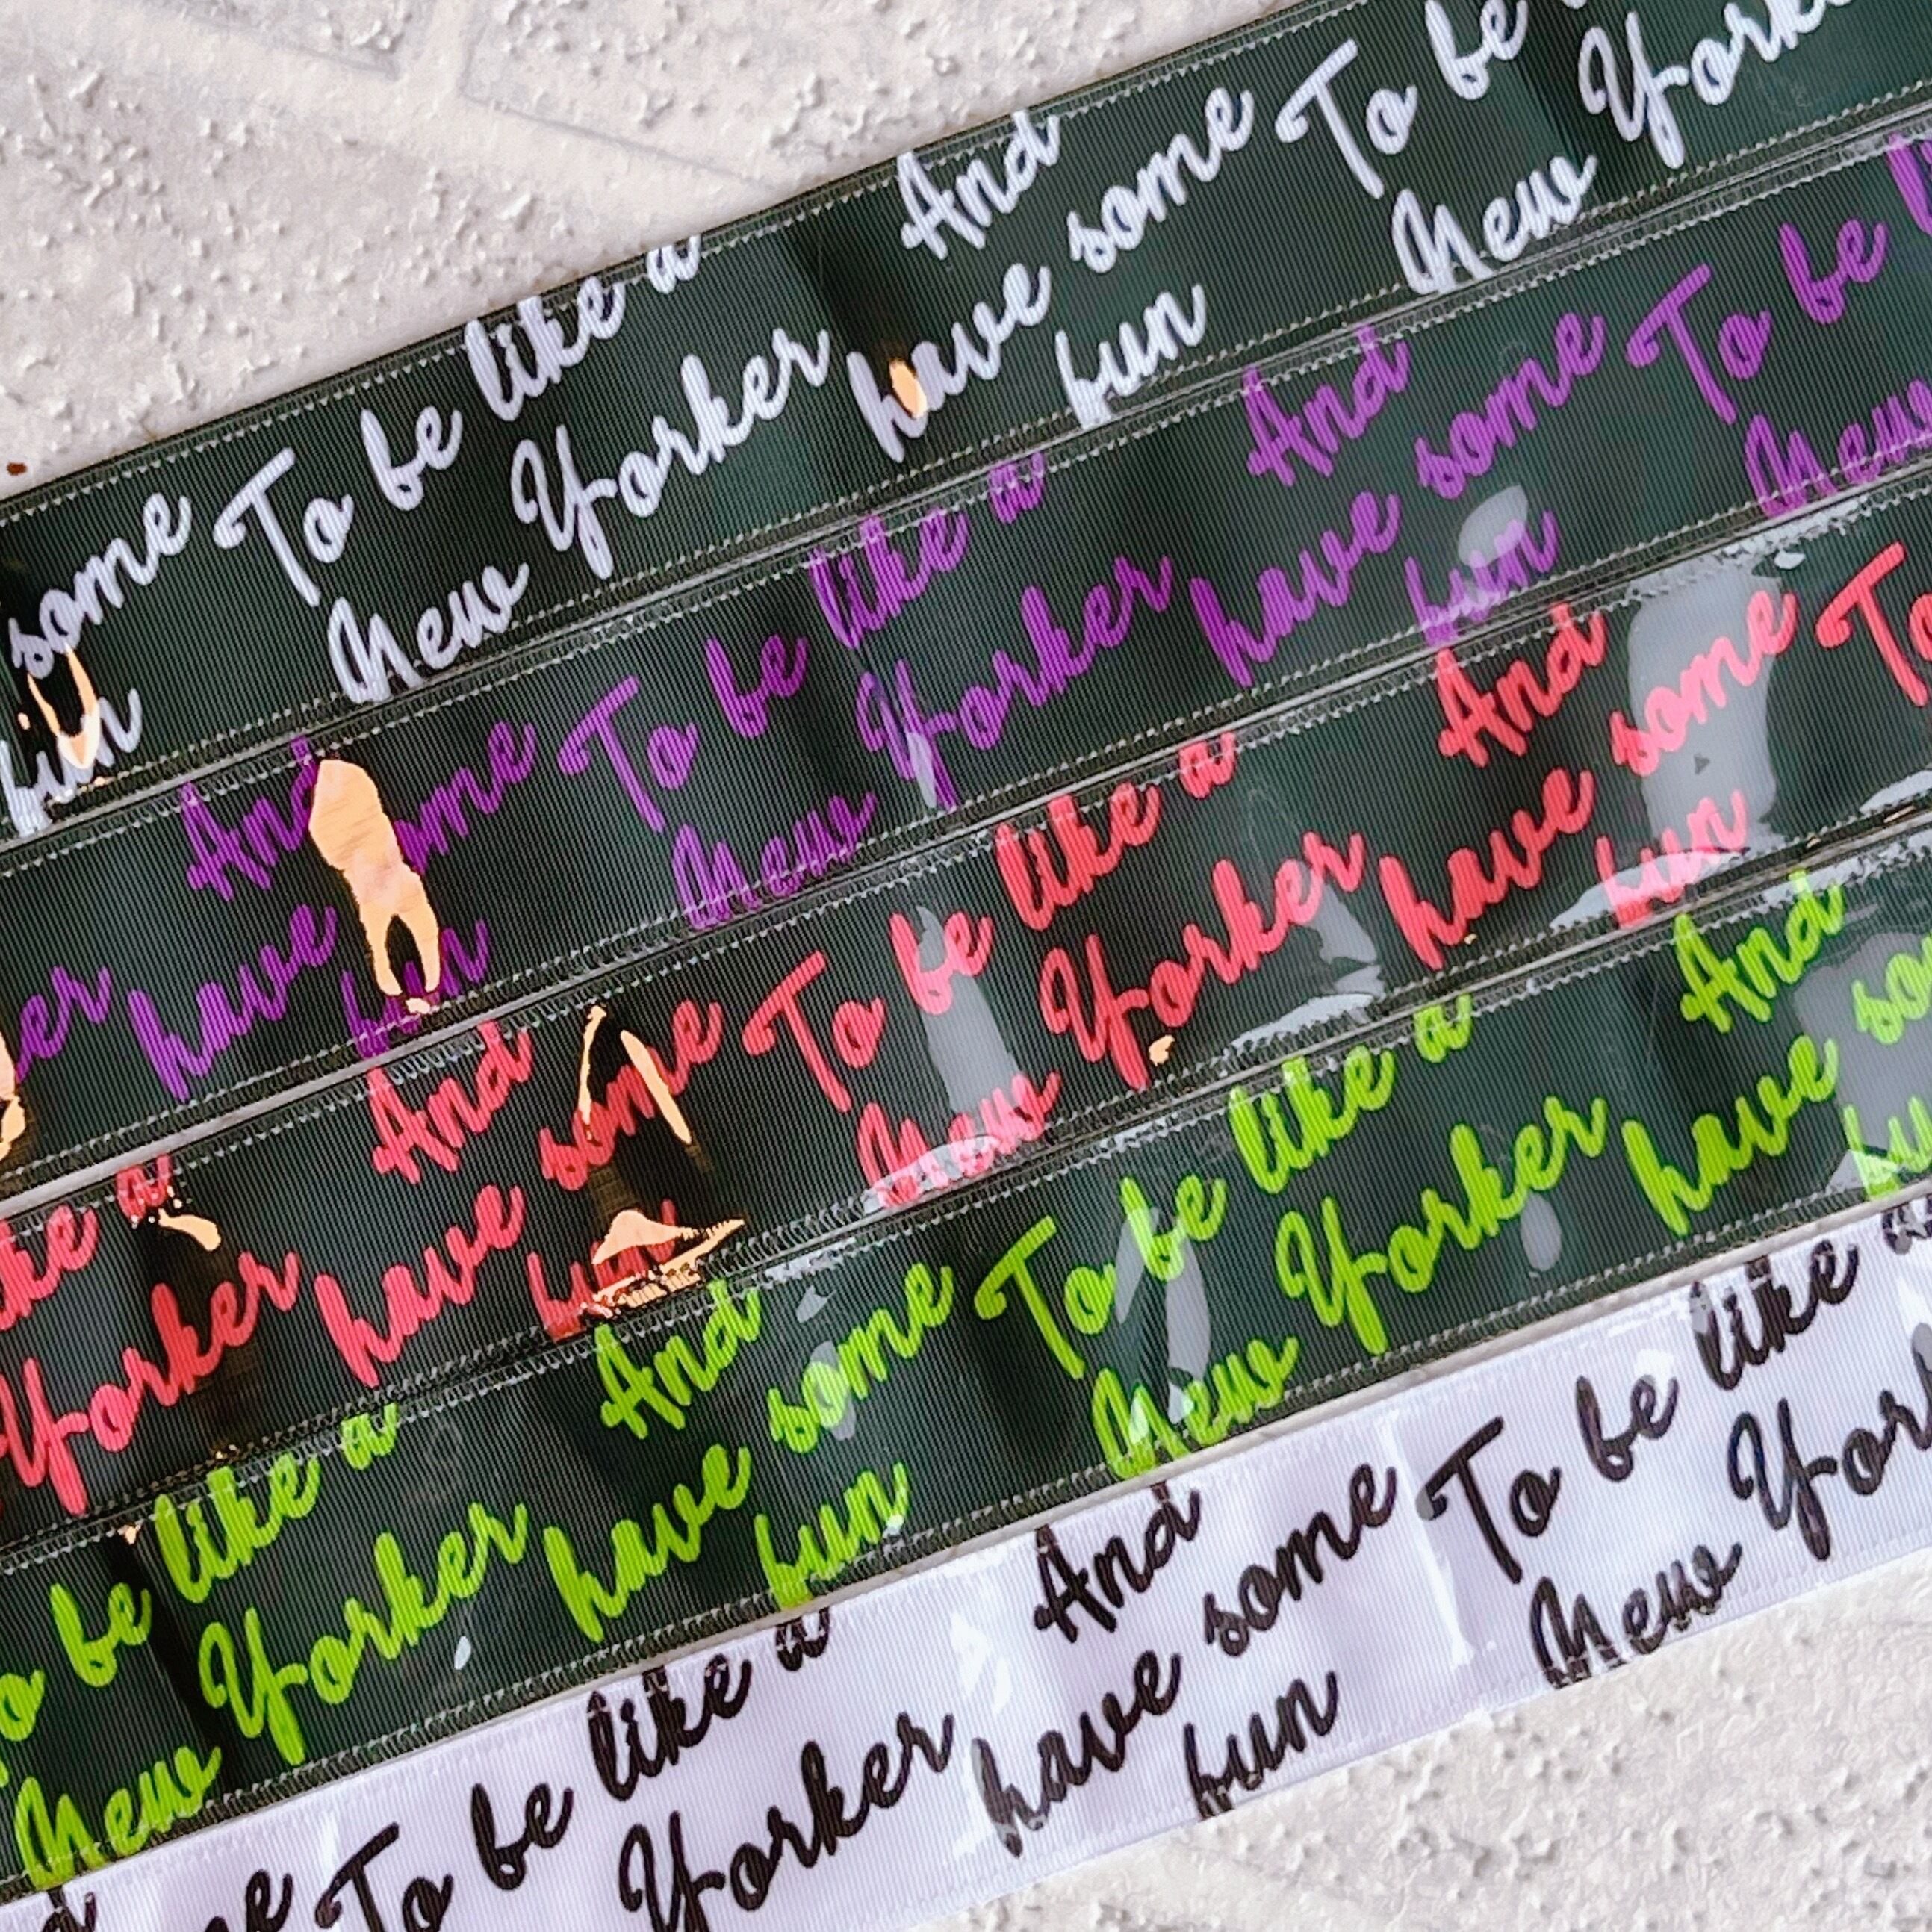 some To be like a And have some To be
fun New Yorker fun New Yorke
er And have me To be like a And have some To be
fun New Yorker fun New
ke a And some To be like a And some To
Yorker have fun New Yorker have fun
o be like a And have some To be like a And have so
New Yorker fun New Yorker fu
me To be like a And have some To be like a
Yorker fun New Yor